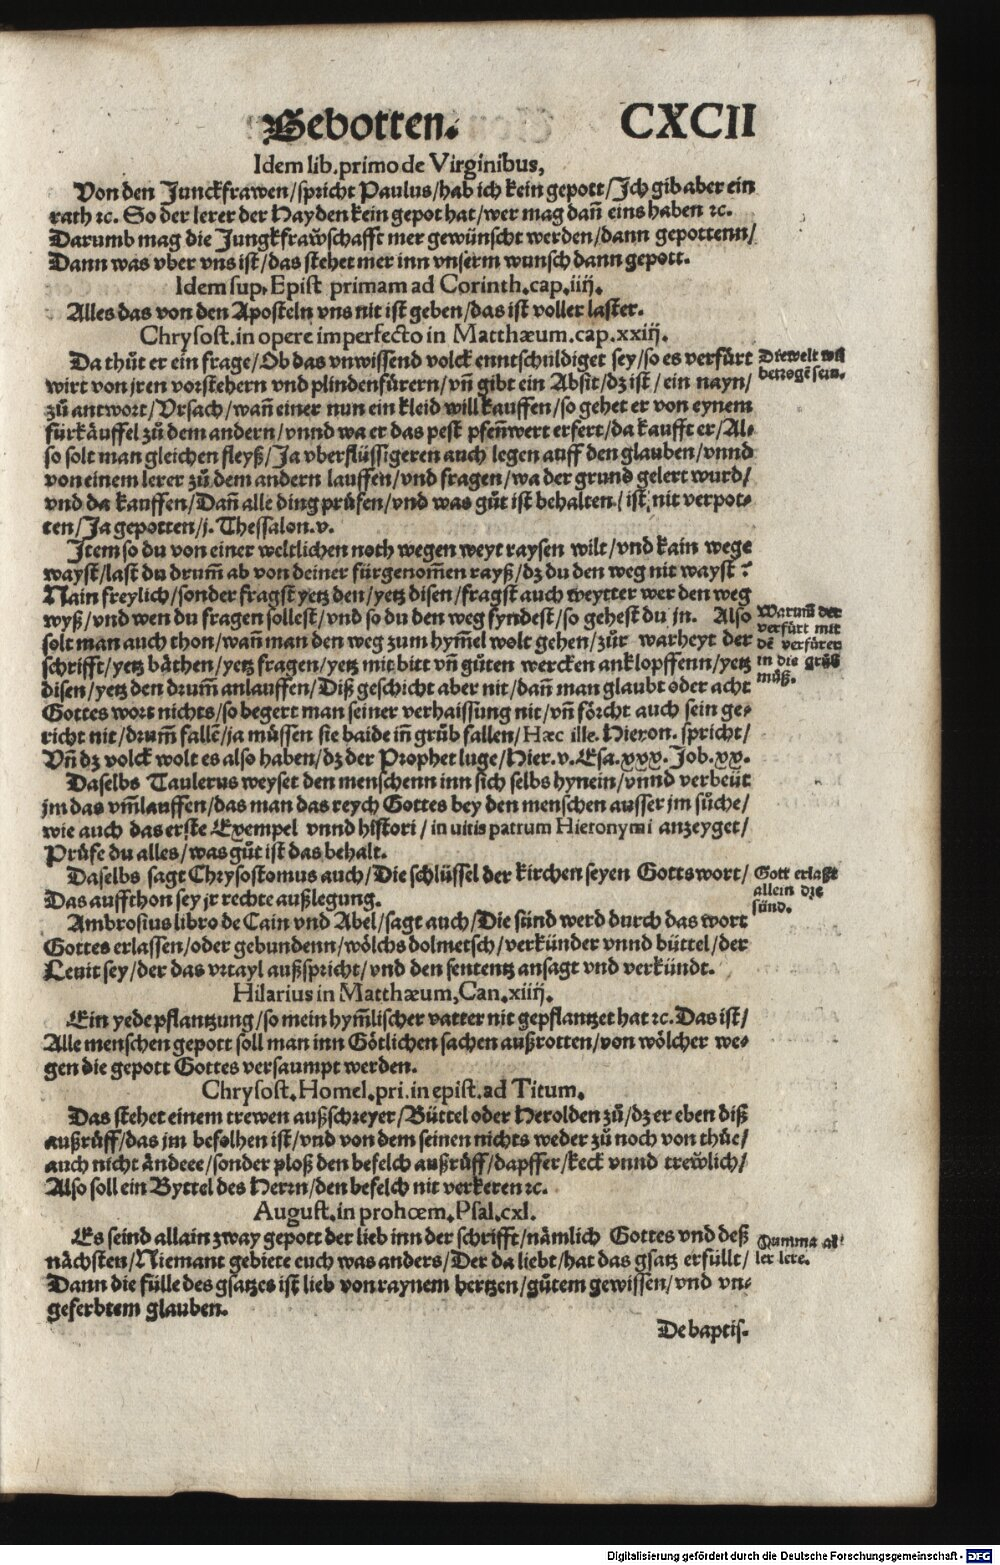 Gebotten. CXCII
Idem lib. primo de Virginibus,
Von den Junckfrawen/spricht Paulus/hab ich kein gepott/Ich gib aber ein
rath ꝛc. So der lerer der Hayden kein gepot hat/wer mag dañ eins haben ꝛc.
Darumb mag die Jungkfrawschafft mer gewünscht werden/dann gepottenn/
Dann was vber vns ist/das stehet mer inn vnserm wunsch dann gepott.
Idem sup. Epist primam ad Corinth. cap. iiij.
Alles das von den Aposteln vns nit ist geben/das ist voller laster.
Chrysost. in opere imperfecto in Matthæum. cap. xxiij.
Da thůt er ein frage/Ob das vnwissend volck enntschuldiget sey/so es verfürt
wirt von jren vorstehern vnd plindenfürern/vñ gibt ein Absit/dz ist/ein nayn/
zů antwort/Vrsach/wañ einer nun ein kleid will kauffen/so gehet er von eynem
fürkäuffel zů dem andern/vnnd wa er das pest pfeñwert erfert/da kaufft er/Al-
so solt man gleichen fleyß/Ja vberflüssigeren auch legen auff den glauben/vnnd
von einem lerer zů dem andern lauffen/vnd fragen/wa der grund gelert wurd/
vnd da kauffen/Dañ alle ding prüfen/vnd was gůt ist behalten/ist nit verpot-
ten/Ja gepotten/j. Thessalon. v.
Die welt wil
betrogẽ sein.
Item so du von einer weltlichen noth wegen weyt raysen wilt/vnd kain wege
wayst/last du drum̃ ab von deiner fürgenom̃en rayß/dz du den weg nit wayst?
Nain freylich/sonder fragst yetz den/yetz disen/fragst auch weytter wer den weg
wyß/vnd wen du fragen sollest/vnd so du den weg fyndest/so gehest du jn. Also
solt man auch thon/wañ man den weg zum hym̃el wolt gehen/zůr warheyt der
schrifft/yetz bäthen/yetz fragen/yetz mit bitt vñ gůten wercken anklopffenn/yetz
disen/yetz den drum̃ anlauffen/Diß geschicht aber nit/dañ man glaubt oder acht
Gottes wort nichts/so begert man seiner verhaissung nit/vñ förcht auch sein ge-
richt nit/drum̃ fallẽ/ja müssen sie baide iñ grůb fallen/Hæc ille. Hieron. spricht/
Vñ dz volck wolt es also haben/dz der Prophet luge/Hier. v. Esa. xxx. Job. xx.
Warum̃ der
verfürt mit
dẽ verfürer
in die grůb
můß.
Daselbs Taulerus weyset den menschenn inn sich selbs hynein/vnnd verbeüt
jm das vm̃lauffen/das man das reych Gottes bey den menschen ausser jm sůche/
wie auch das erste Exempel vnnd histori/in uitis patrum Hieronymi anzeyget/
Prüfe du alles/was gůt ist das behalt.
Daselbs sagt Chrysostomus auch/Die schlüssel der kirchen seyen Gotts wort/
Das auffthon sey jr rechte außlegung.
Gott erlaßt
allein die
sünd.
Ambrosius libro de Cain vnd Abel/sagt auch/Die sünd werd durch das wort
Gottes erlassen/oder gebundenn/wölchs dolmetsch/verkünder vnnd büttel/der
Levit sey/der das vrtayl außspricht/vnd den sententz ansagt vnd verkündt.
Hilarius in Matthæum, Can. xiiij.
Ein yede pflantzung/so mein hym̃lischer vatter nit gepflantzet hat ꝛc. Das ist/
Alle menschen gepott soll man inn Götlichen sachen außrotten/von wölcher we-
gen die gepott Gottes versaumpt werden.
Chrysost. Homel. pri. in epist. ad Titum.
Das stehet einem trewen außschreyer/Büttel oder Herolden zů/dz er eben diß
außrůff/das jm befolhen ist/vnd von dem seinen nichts weder zů noch von thůe/
auch nicht ändeee/sonder ploß den befelch außrůff/dapffer/keck vnnd trewlich/
Also soll ein Byttel des Herrn/den befelch nit verkeren ꝛc.
August. in prohœm. Psal. cxl.
Es seind allain zway gepott der lieb inn der schrifft/nämlich Gottes vnd deß
nächsten/Niemant gebiete euch was anders/Der da liebt/hat das gsatz erfüllt/
Dann die fülle des gsatzes ist lieb von raynem hertzen/gůtem gewissen/vnd vn-
geferbtem glauben.
Summa al-
ler lere.
De baptis-
Digitalisierung gefördert durch die Deutsche Forschungsgemeinschaft - DFG